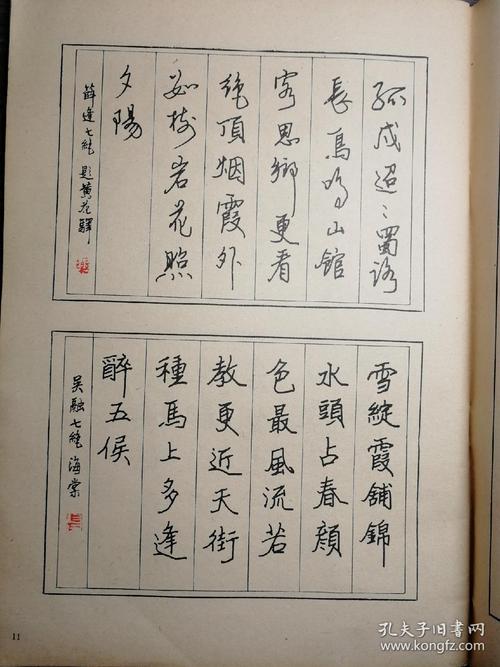 孤戍迢〻蜀路
長鳥鳴山館
客思鄉更看
絶頂烟霞外
数樹岩花照
夕陽
薛逢七絶 題黄花驛
雪綻霞舖錦
水頭占春顏
色最風流若
教更近天街
種馬上多逢
醉五侯
吴融七絶海棠
11
孔夫子旧書网
www.kongfz.com